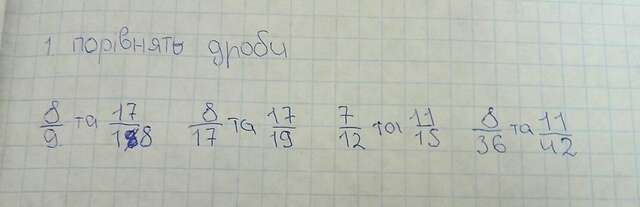 1 порівнять дроби
8/9 та 17/18 8/17 та 17/19 7/12 та 11/15 8/36 та 11/42